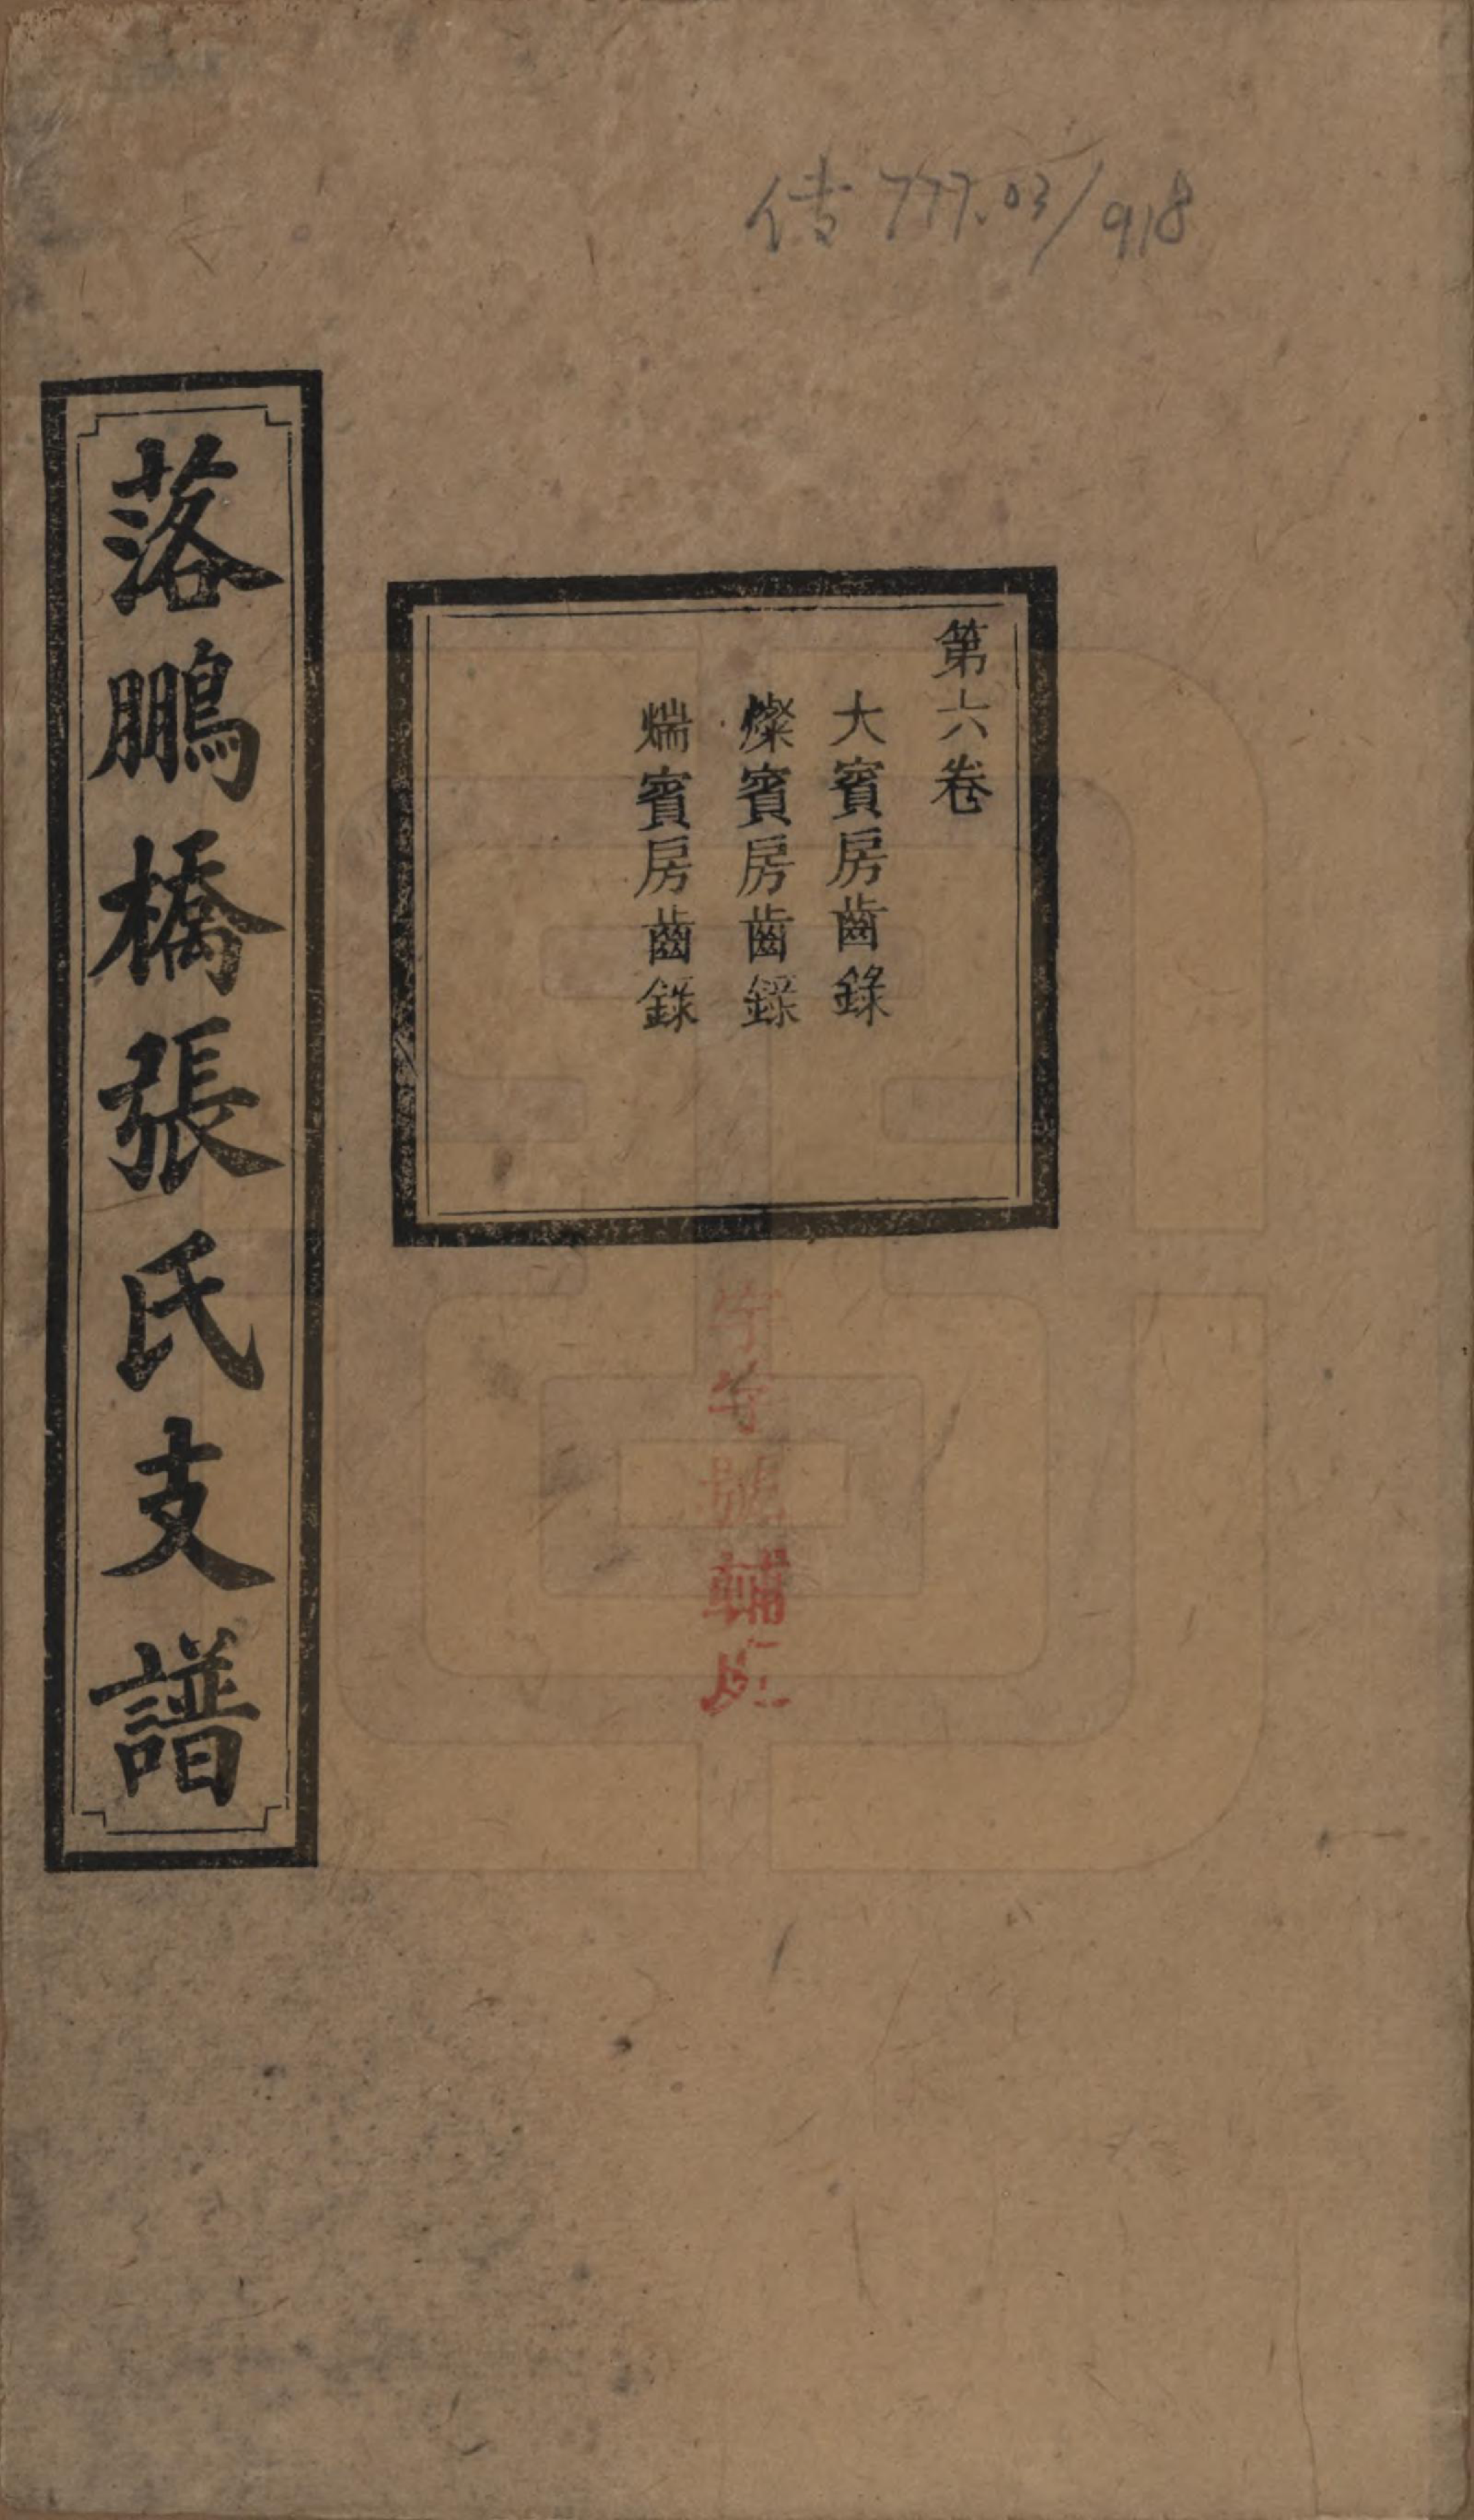 传 777.03/918
第六卷
大賓房齒錄
燦賓房齒錄
煓賓房齒錄
落鵬橋張氏支譜
字號輔房